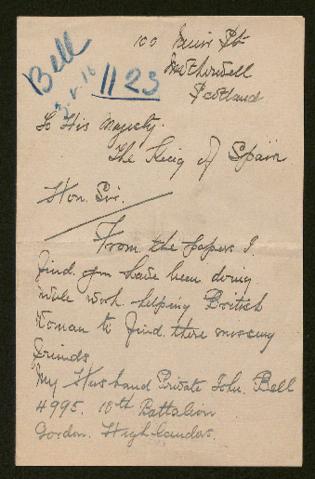 Bell
3-1-16
1123
100 Muir St
Motherwell
Scotland
To His Majesty.
The King of Spain
Hon. Sir.
From the papers I.
find you have been doing
noble work helping British
Woman to find there missing
friends
My Husband Private John. Bell
4995. 10th Battalion
Gordon. Highlanders.